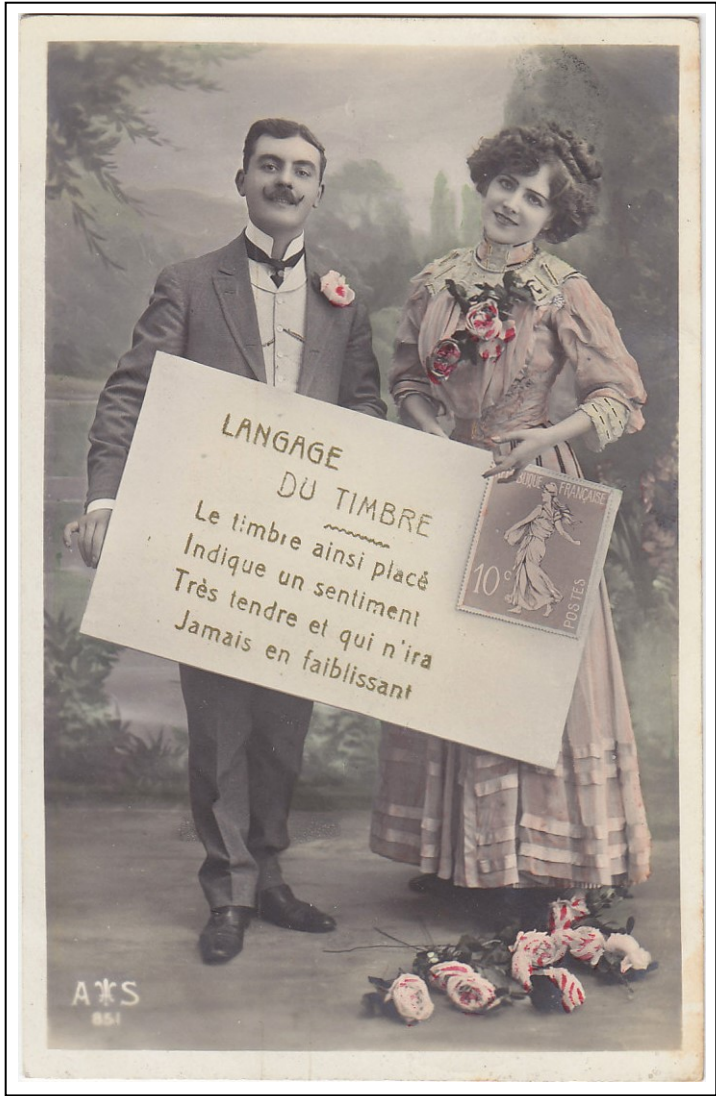 LANGAGE
DU TIMBRE
Le timbre ainsi placé
Indique un sentiment
Très tendre et qui n'ira
Jamais en faiblissant
FRANÇAISE
10c
POSTES
A S
851